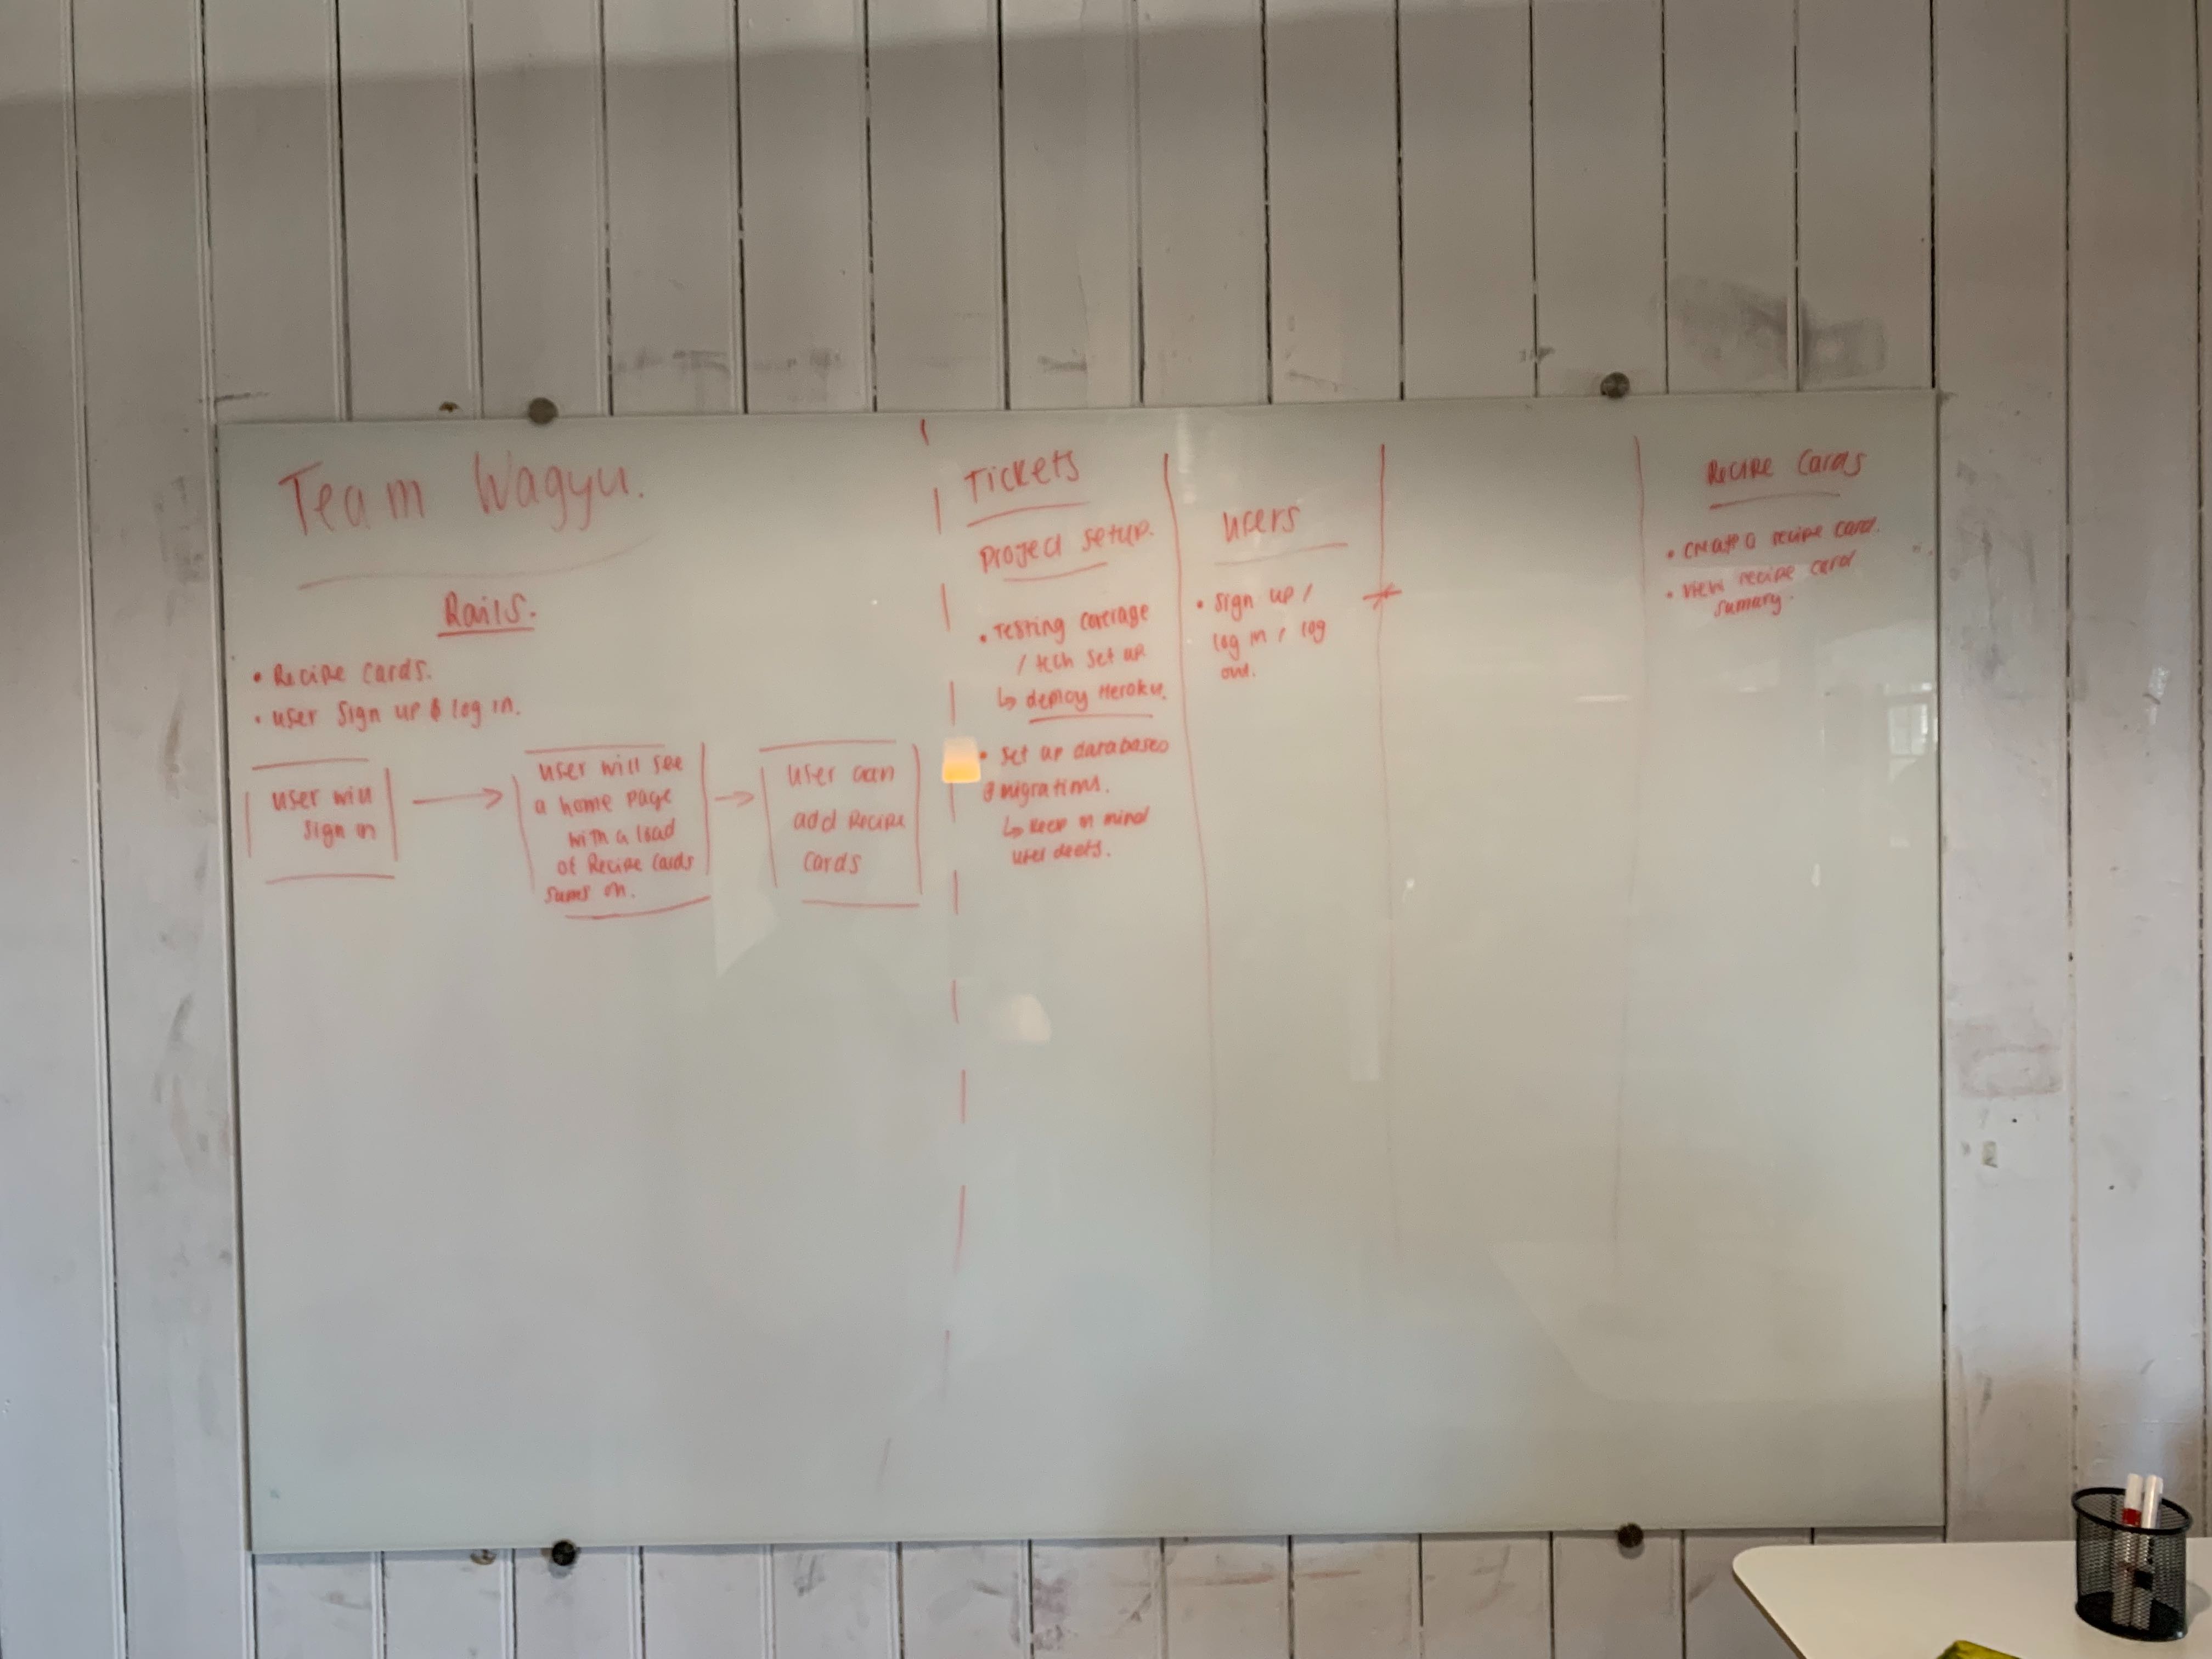 Team Wagyu.
Rails.
• Recipe Cards.
• User Sign up & log in.
User will
sign in
User will see
a home page
with a load
of Recipe Cards
sums on.
User can
add Recipe
Cards
Tickets
Project setup.
• Testing coverage
/ tech set up
↳ deploy Heroku.
• Set up databases
& migrations.
↳ Keep in mind
user deets.
Users
• Sign up /
log in / log
out.
Recipe Cards
• Create a recipe card.
• View recipe card
sumary.